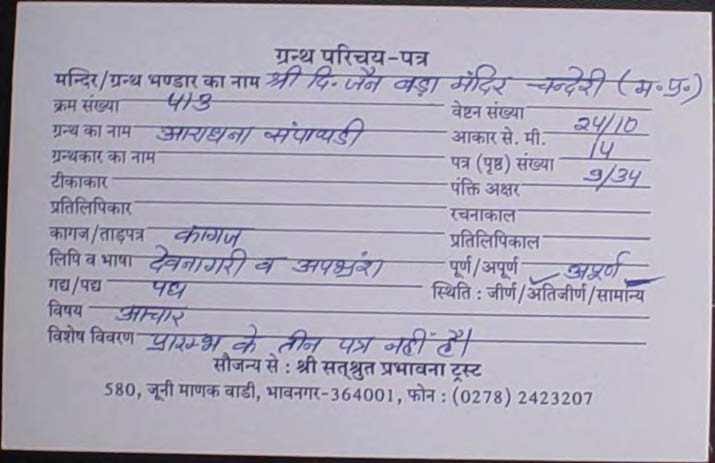 ग्रन्थ परिचय-पत्र
मन्दिर/ग्रन्थ भण्डार का नाम श्री दि. जैन बड़ा मंदिर चन्देरी (म.प्र.)
क्रम संख्या ५/३ वेष्टन संख्या
ग्रन्थ का नाम आराधना आकार से. मी. २४/१०
ग्रन्थकार का नाम पत्र (पृष्ठ) संख्या १५
टीकाकार पंक्ति अक्षर ९/३५
प्रतिलिपिकार रचनाकाल
कागज/ताड़पत्र कागज प्रतिलिपिकाल
लिपि व भाषा देवनागरी व अपभ्रंश पूर्ण/अपूर्ण अपूर्ण
गद्य/पद्य पद्य स्थिति : जीर्ण/अतिजीर्ण/सामान्य
विषय आचार
विशेष विवरण प्रारम्भ के तीन पत्र नहीं है।
सौजन्य से : श्री सत्श्रुत प्रभावना ट्रस्ट
580, जूनी माणक वाडी, भावनगर-364001, फोन : (0278) 2423207